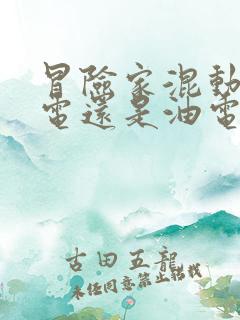 冒險家混動
電還是油電
古田五龍
未经同意禁止转载